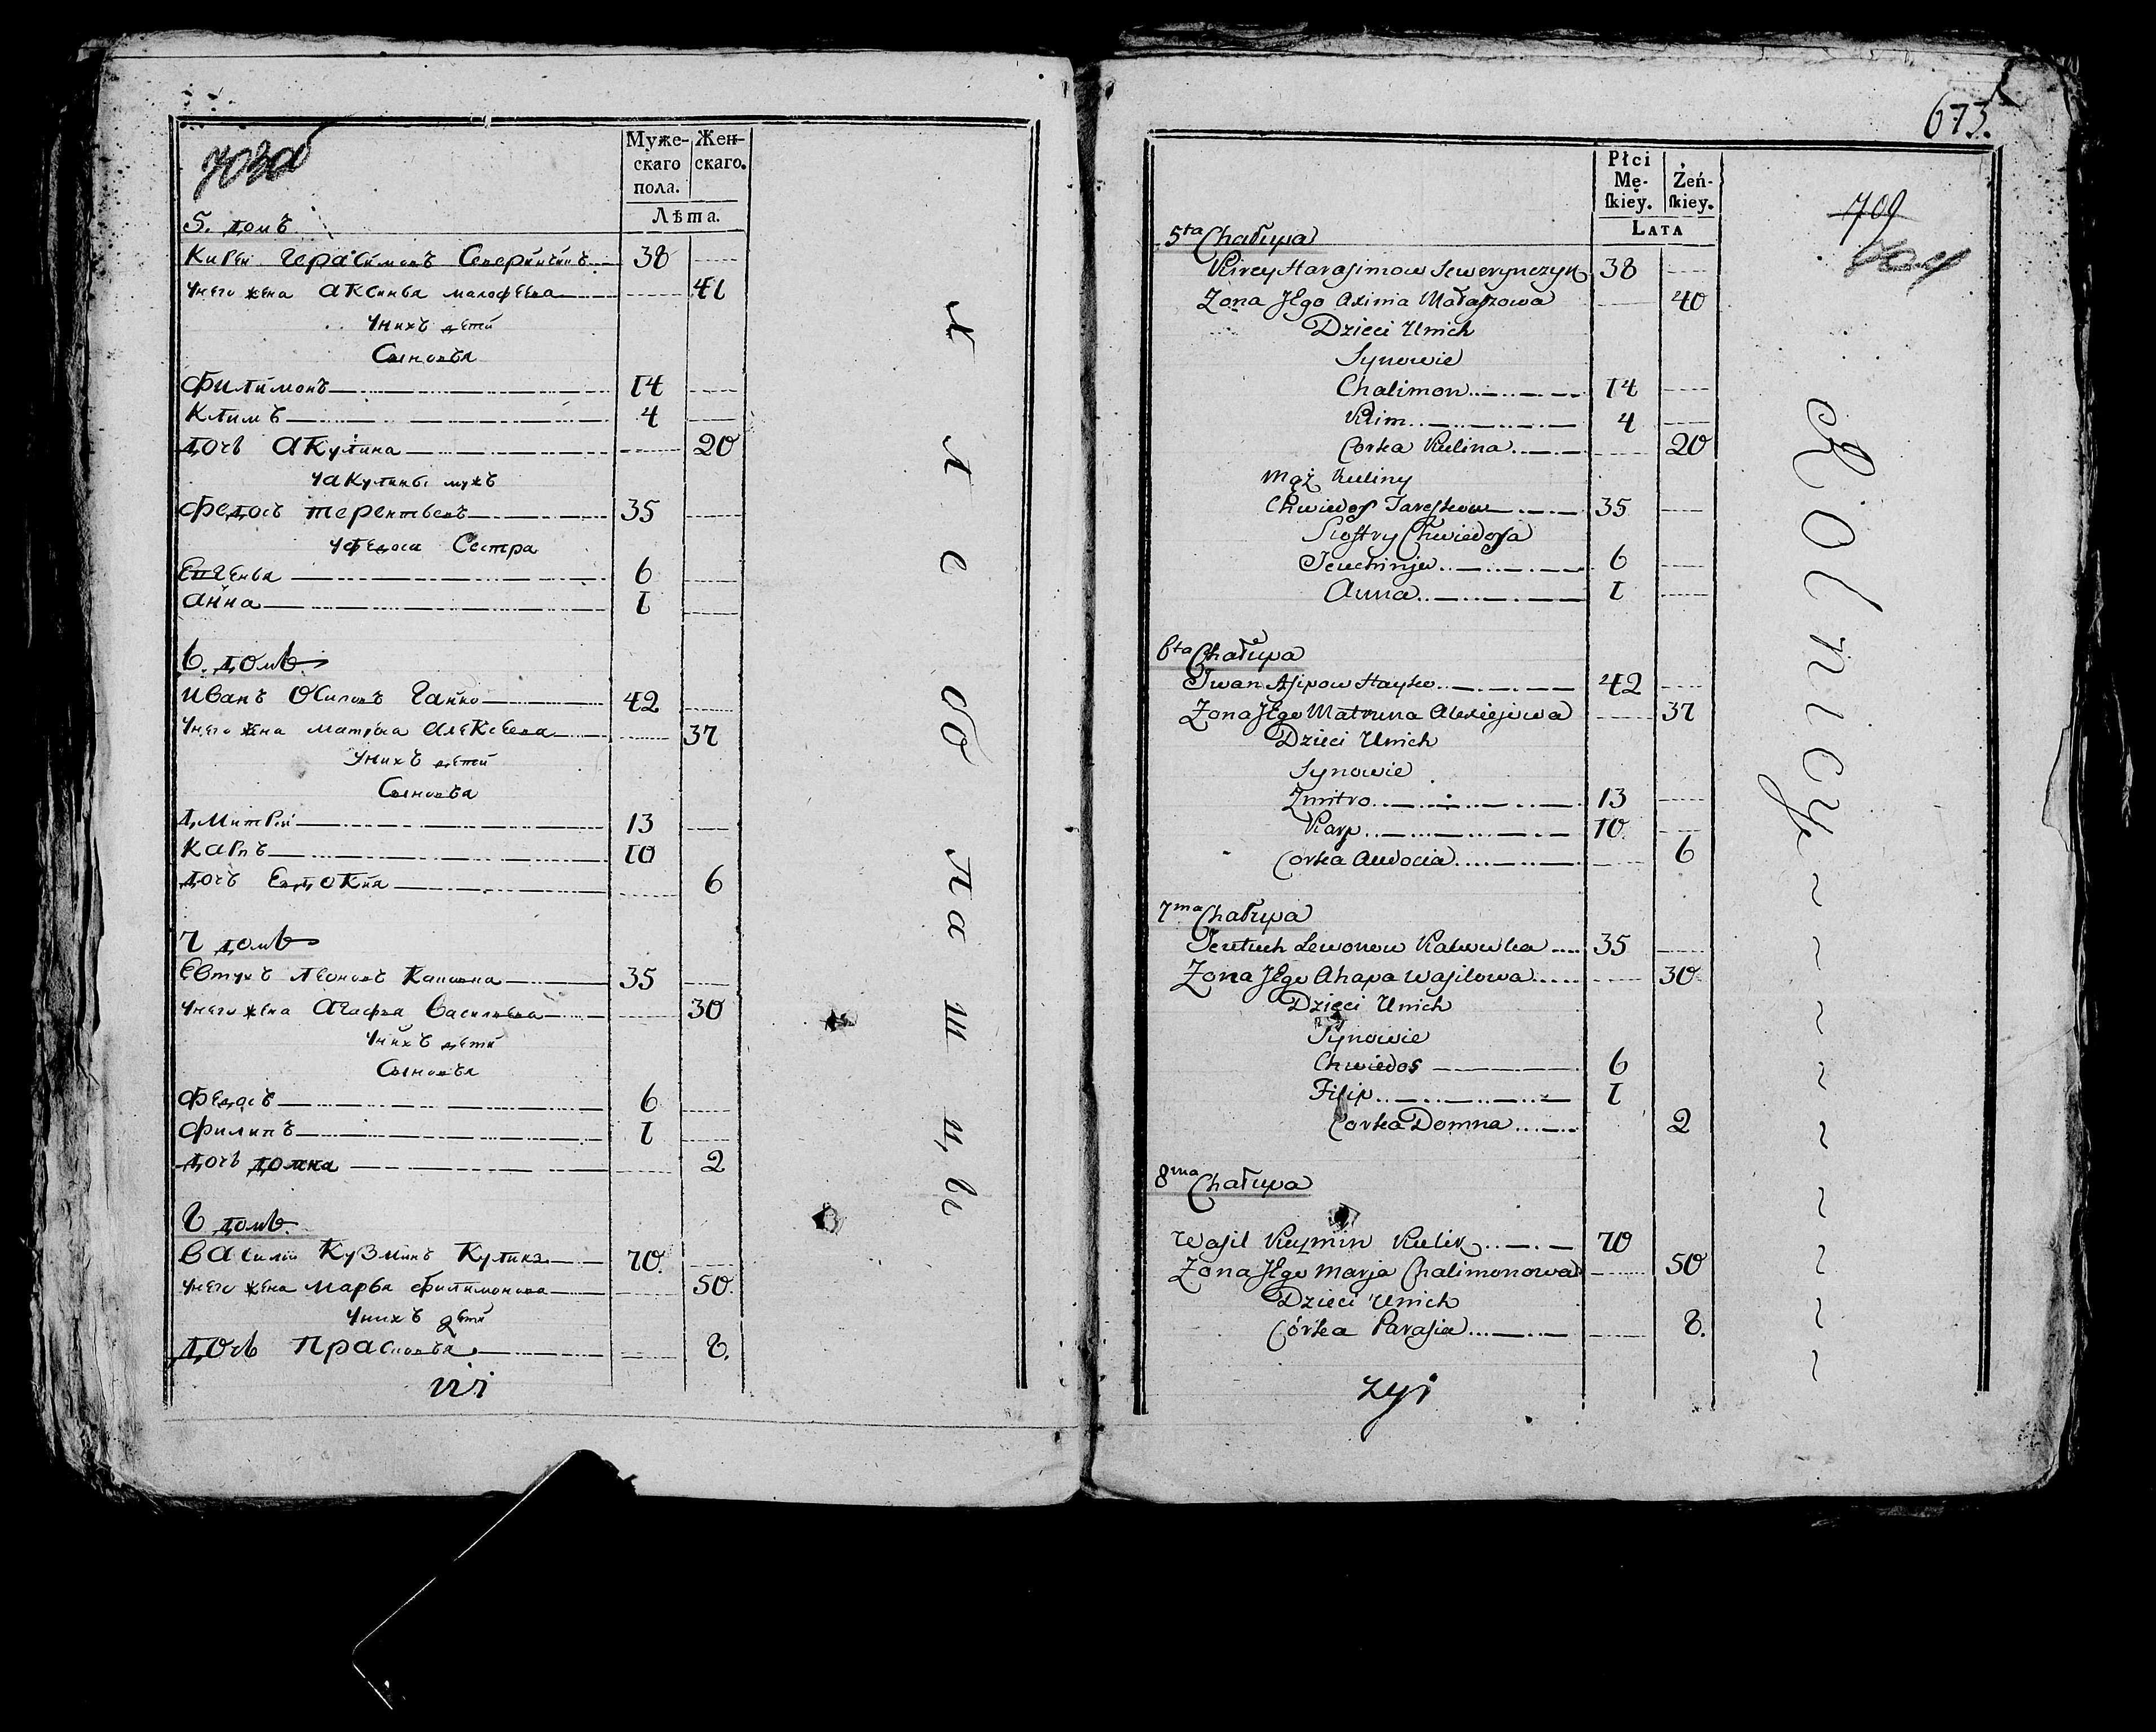 703об
Муже-
скаго
пола.
Жен-
скаго.
Лѣта.
5. домъ
Кирей Герасимовъ Северинчикъ 38
У него жена Аксинья малофеева 41
У нихъ дети
Сыновья
Филимонъ 14
Климъ 4
дочь Акулина 20
У акулины мужъ
Федосъ терентьевъ 35
У федоса Сестра
Евгенья 6
анна 1
6. домъ
Иванъ Осиповъ Гайко 42
У него жена матрона Алексеева 37
У нихъ дети
Сыновья
дмитрей 13
Карпъ 10
дочь Евдокия 6
7 домъ
Евтухъ Леоновъ 35
У него жена Агафья Васильева 30
У нихъ дети
Сыновья
Федосъ 6
Филипъ 1
дочь домна 2
8 домъ.
Василий Кузминъ Куликъ 70
У него жена марья Филимонова 50.
У нихъ дети
дочь Прасковья 8.
Хлебопашцы
673.
Płci
Mę-
ſkiey.
Żeń-
ſkiey.
Lata
5ta Chałupa
Kirey Harasimow Seweryńczyk 38
Zona Jego Axinia Małaszowa 40
Dzieci Unich
Synowie
Chalimon 14
Klim 4
Corka Kulina 20
Mąż Kuliny
Chwiedos 35
Siostry Chwiedosa
Jeuchinja 6
Anna 1
6ta Chałupa
Jwan Asipow Hayko 42
Zona Jego Matruna Alexiejewa 37
Dzieci Unich
Synowie
Zmitro 13
Karp 10
Corka Audocia 6
7ma Chałupa
Jeutuch Lewonow 35
Zona Jego Ahapa Wasilowa 30
Dzieci Unich
Synowie
Chwiedos 6
Filip 1
Corka Domna 2
8ma Chałupa
Wasil Kuzmin Kulik 70
Zona Jego Marja Chalimonowa 50
Dzieci Unich
Córka Parasia 8.
zyi
Rolnicy